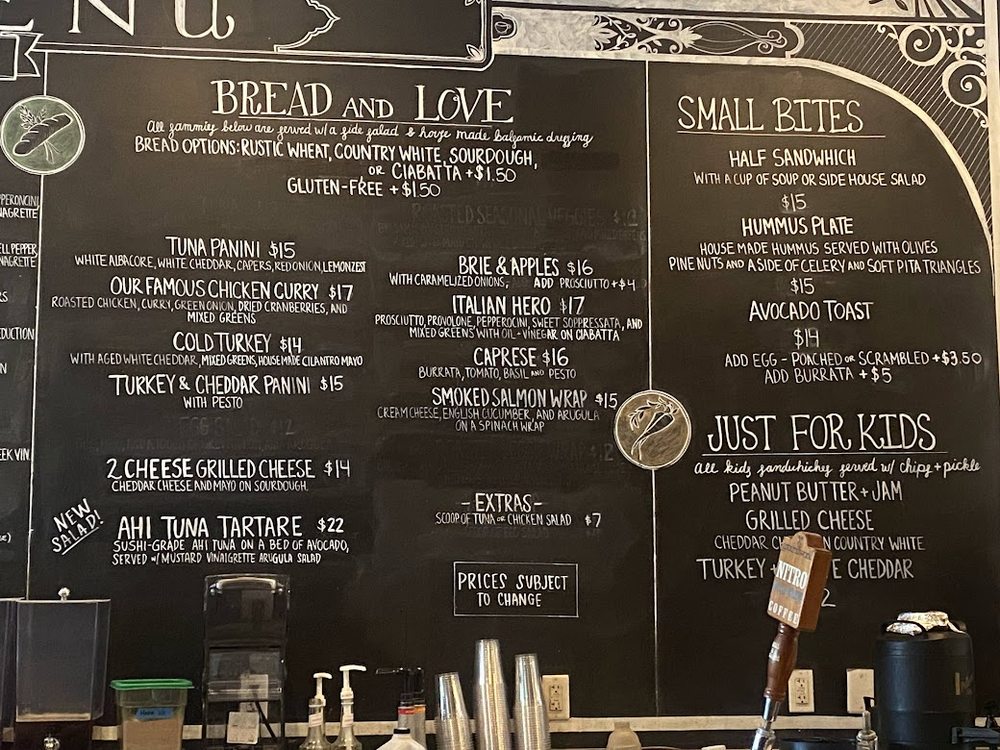 ENU
BREAD AND LOVE
All sammies below are served w/a side salad & house made balsamic dressing
BREAD OPTIONS: RUSTIC WHEAT, COUNTRY WHITE, SOURDOUGH,
OR CIABATTA +$1.50
GLUTEN-FREE +$1.50
TUNA PANINI $15
WHITE ALBACORE, WHITE CHEDDAR, CAPERS, RED ONION, LEMON ZEST
OUR FAMOUS CHICKEN CURRY $17
ROASTED CHICKEN, CURRY, GREEN ONION, DRIED CRANBERRIES, AND
MIXED GREENS
COLD TURKEY $14
WITH AGED WHITE CHEDDAR, MIXED GREENS, HOUSE MADE CILANTRO MAYO
TURKEY & CHEDDAR PANINI $15
WITH PESTO
2 CHEESE GRILLED CHEESE $14
CHEDDAR CHEESE AND MAYO ON SOURDOUGH.
NEW
SALAD!
AHI TUNA TARTARE $22
SUSHI-GRADE AHI TUNA ON A BED OF AVOCADO,
SERVED W/ MUSTARD VINAIGRETTE ARUGULA SALAD
ROASTED SEASONAL VEGGIES
BRIE & APPLES $16
WITH CARAMELIZED ONIONS, ADD PROSCIUTTO +$4
ITALIAN HERO $17
PROSCIUTTO, PROVOLONE, PEPPEROCINI, SWEET SOPPRESSATA, AND
MIXED GREENS WITH OIL + VINEGAR ON CIABATTA
CAPRESE $16
BURRATA, TOMATO, BASIL AND PESTO
SMOKED SALMON WRAP $15
CREAM CHEESE, ENGLISH CUCUMBER, AND ARUGULA
ON A SPINACH WRAP
-EXTRAS-
SCOOP OF TUNA OR CHICKEN SALAD $7
PRICES SUBJECT
TO CHANGE
SMALL BITES
HALF SANDWHICH
WITH A CUP OF SOUP OR SIDE HOUSE SALAD
$15
HUMMUS PLATE
HOUSE MADE HUMMUS SERVED WITH OLIVES
PINE NUTS AND A SIDE OF CELERY AND SOFT PITA TRIANGLES
$15
AVOCADO TOAST
$14
ADD EGG - POACHED OR SCRAMBLED +$3.50
ADD BURRATA +$5
JUST FOR KIDS
All kids sandwhiches served w/ chips + pickle
PEANUT BUTTER + JAM
GRILLED CHEESE
CHEDDAR COUNTRY WHITE
TURKEY CHEDDAR
NITRO
COFFEE